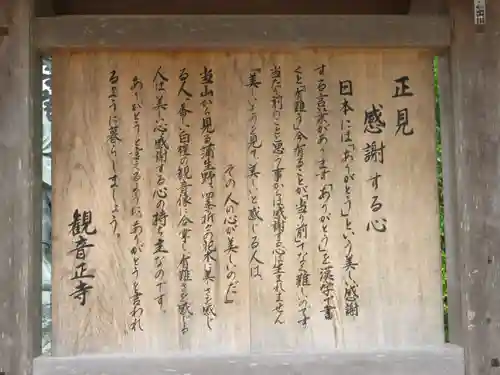 正見
感謝する心
日本には「ありがとう」という美しい感謝
する言葉があります「ありがとう」を漢字で書
くと「有難う」今有ることが当り前でなく難しいのです
当たり前のことと思う事からは感謝の心は生まれません
「美しいものを見て、美しいと感じる人は、
その人の心が美しいのだ」
当山から見る蒲生野、
の美しさを感じ
る人、
白
の観音像に合掌し有難さを感じる
人は美しい心、感謝する心の持ち主なのです。
ありがとうと言えるように、ありがとうと言われ
るように暮らしましょう。
観音正寺